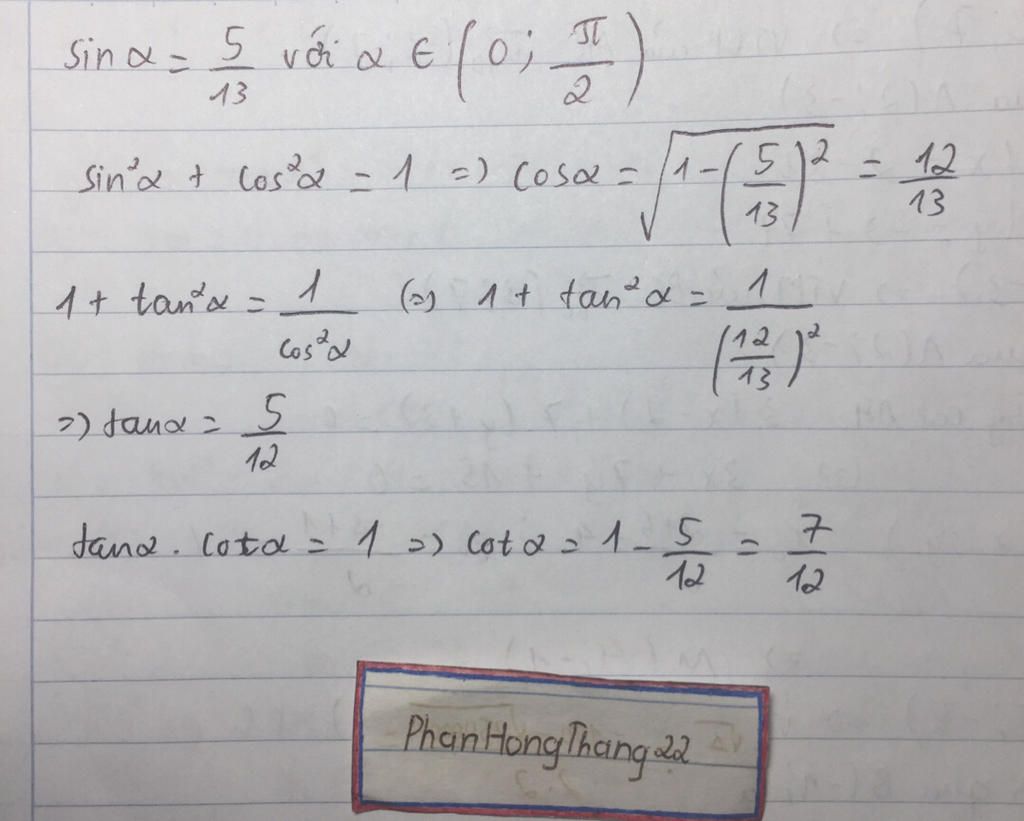 sin α = 5/13 với α ∈ (0; π/2)
sin²α + cos²α = 1 => cosα = √(1-(5/13)²) = 12/13
1 + tan²α = 1/cos²α (=) 1 + tan²α = 1/(12/13)²
=) tanα = 5/12
tanα . cotα = 1 =) cotα = 1 - 5/12 = 7/12
PhanHongThang22